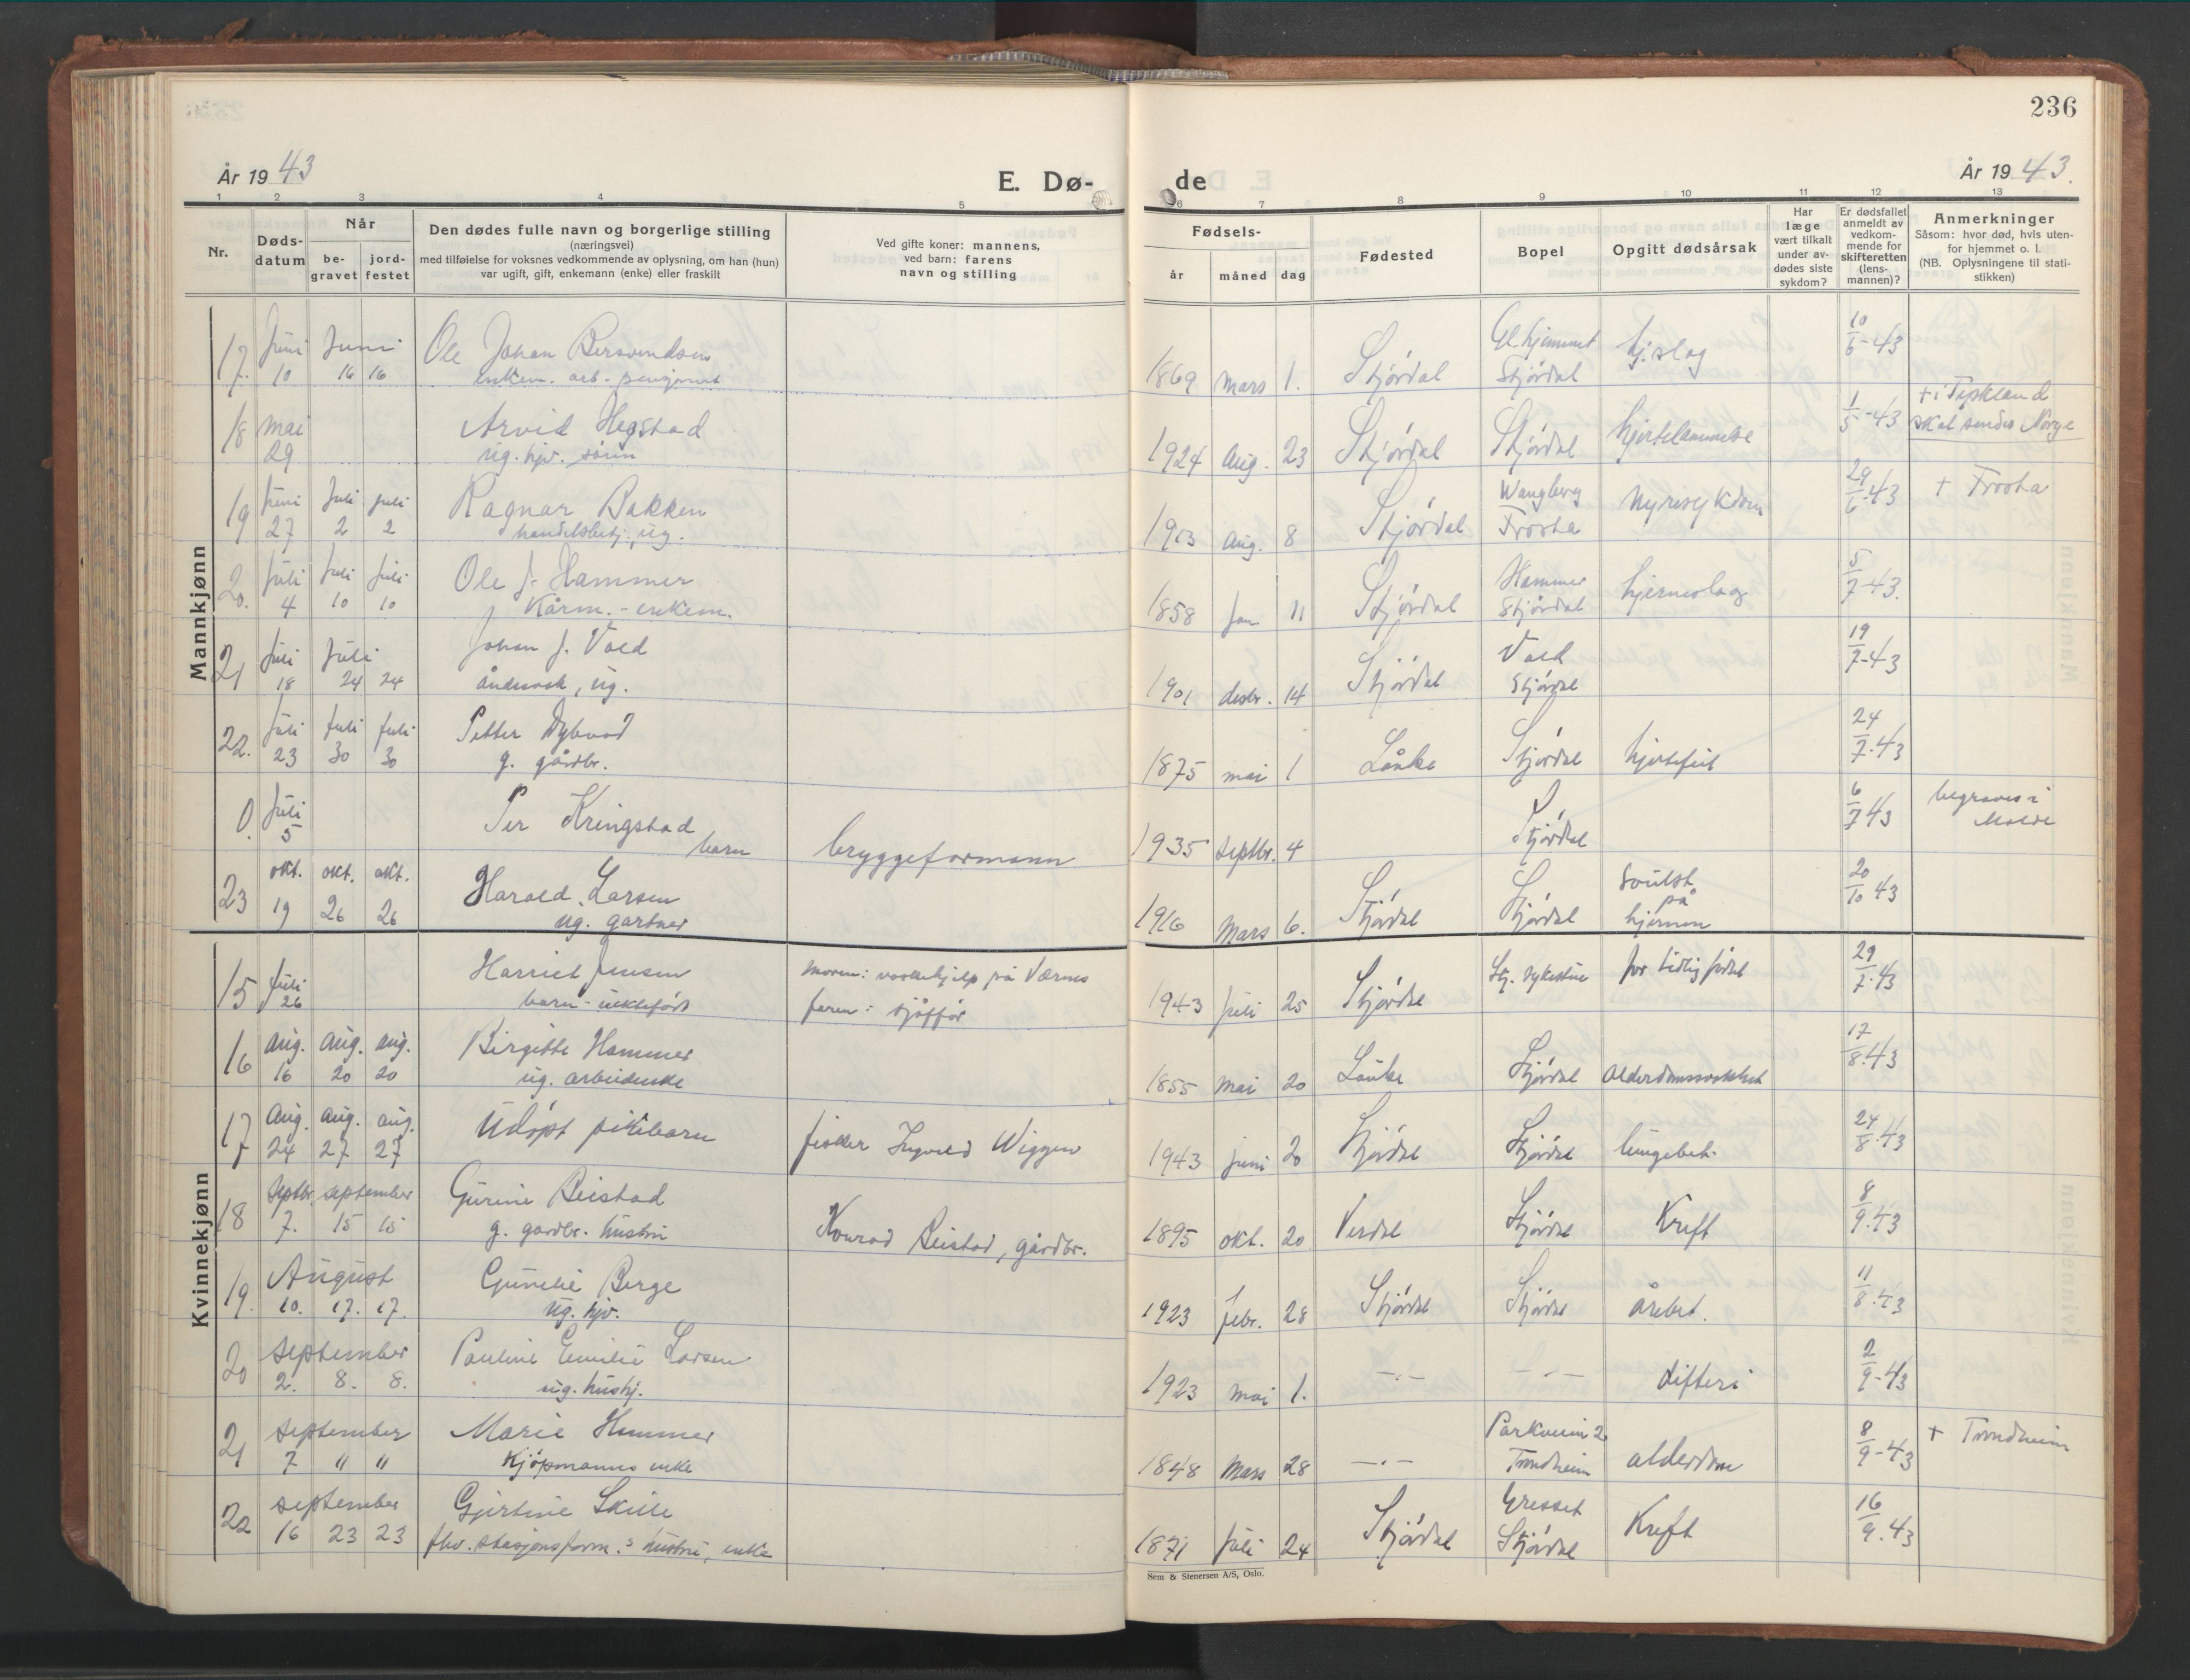 236
År 1943
E. Dø-
de
År 1943.
1 2 3 4 5
6 7 8 9 10 11 12 13
Nr.
Døds-
datum
Når
be-
gravet
jord-
festet
Den dødes fulle navn og borgerlige stilling
(næringsvei)
med tilføielse for voksnes vedkommende av oplysning, om han (hun)
var ugift, gift, enkemann (enke) eller fraskilt
Ved gifte koner: mannens,
ved barn: farens
navn og stilling
Fødsels-
år
måned
dag
Fødested
Bopel
Opgitt dødsårsak
Har
læge
vært tilkalt
under av-
dødes siste
sykdom?
Er dødsfallet
anmeldt av
vedkom-
mende for
skifteretten
(lens-
mannen)?
Anmerkninger
Såsom: hvor død, hvis uten-
for hjemmet o. l.
(NB. Oplysningene til stati-
stikken)
Mannkjønn
17. Juni Juni Ole Johan Bersvendsen 1869 mars 1. Stjørdal Gl.hjemmet hj.slag 10/6-43
10 16 16 enkem. arb. pensjonist Stjørdal
18 mai Arvid Hegstad 1924 Aug. 23 Stjørdal Stjørdal hjertelammelse 1/5-43 + i Tyskland
29 ug. hjv. sønn skal sendes Norge
19 Juni Juli juli Ragnar Bakken 1903 Aug. 8 Stjørdal Wangberg nyresykdom 29/6-43 + Frosta
27 2 2 handelsbetj., ug. Frosta
20. Juli Juli Juli Ole J. Hammer 1858 Jan. 11 Stjørdal Hammer hjerneslag 5/7-43.
4 10 10 Kårm. - enkem. Stjørdal
21 Juli Juli Johan J. Vold 1901 desbr. 14 Stjørdal Vold 19/7-43
18 24 24 åndssvak, ug. Stjørdal
22. Juli Juli Juli Petter Dybvad 1875 mai 1 Lånke Stjørdal hjertefeil 24/7-43
23 30 30 g. gårdbr.
0. Juli Per Kringstad bryggeformann 1935 Septbr. 4 Stjørdal 6/7 43 begraves i
5 barn Molde
23 okt. okt. okt. Harald Larsen 1916 Mars 6. Stjørdal Stjørdal Svulst 20/10 43
19 26 26 ug. gartner på
hjernen
Kvinnekjønn
15 Juli Harriet Jensen moren: vaskehjelp på Værnes 1943 Juli 25 Stjørdal Stj. sykestue for tidlig født 29/7-43
26 barn - uektefødt faren: sjåffør
16 aug. aug. aug. Birgitte Hammer 1855 mai 20 Lånke Stjørdal Alderdomssvakhet 17/8-43
16 20 20 ug. arbeiderske
17 aug. aug. aug. Udøpt pikebarn fisker Ingvald Wiggen 1943 juni 20 Stjørdal Stjørdal lungebet. 24/8-43
24 27 27
18 Septbr. september Gurine Reistad Konrad Reistad, gårdbr. 1895 okt. 20 Verdal Stjørdal Kreft 8/9-43
7. 15 15 g. gardbr. hustru
19. August Gunelie Berge 1923 febr. 28 Stjørdal Stjørdal årebet. 11/8-43
10. 17. 17. ug. hjv.
20 September Pauline Emilie Larsen 1923 mai 1. -"- -"- difteri 2/9-43
2. 8. 8. ug. hushj.
21 September Marie Hammer 1848 mars 28 -"- Parkveien 2 alderdom 8/9-43 + Trondheim
7 " " Kjøpmanns enke Trondheim
22 September Gjertine Skille 1871 Juli 24 Stjørdal Kreft 16/9-43
16 23 23 fhv. stasjonsform.s hustru, enke Stjørdal
Sem & Stenersen A/S, Oslo.